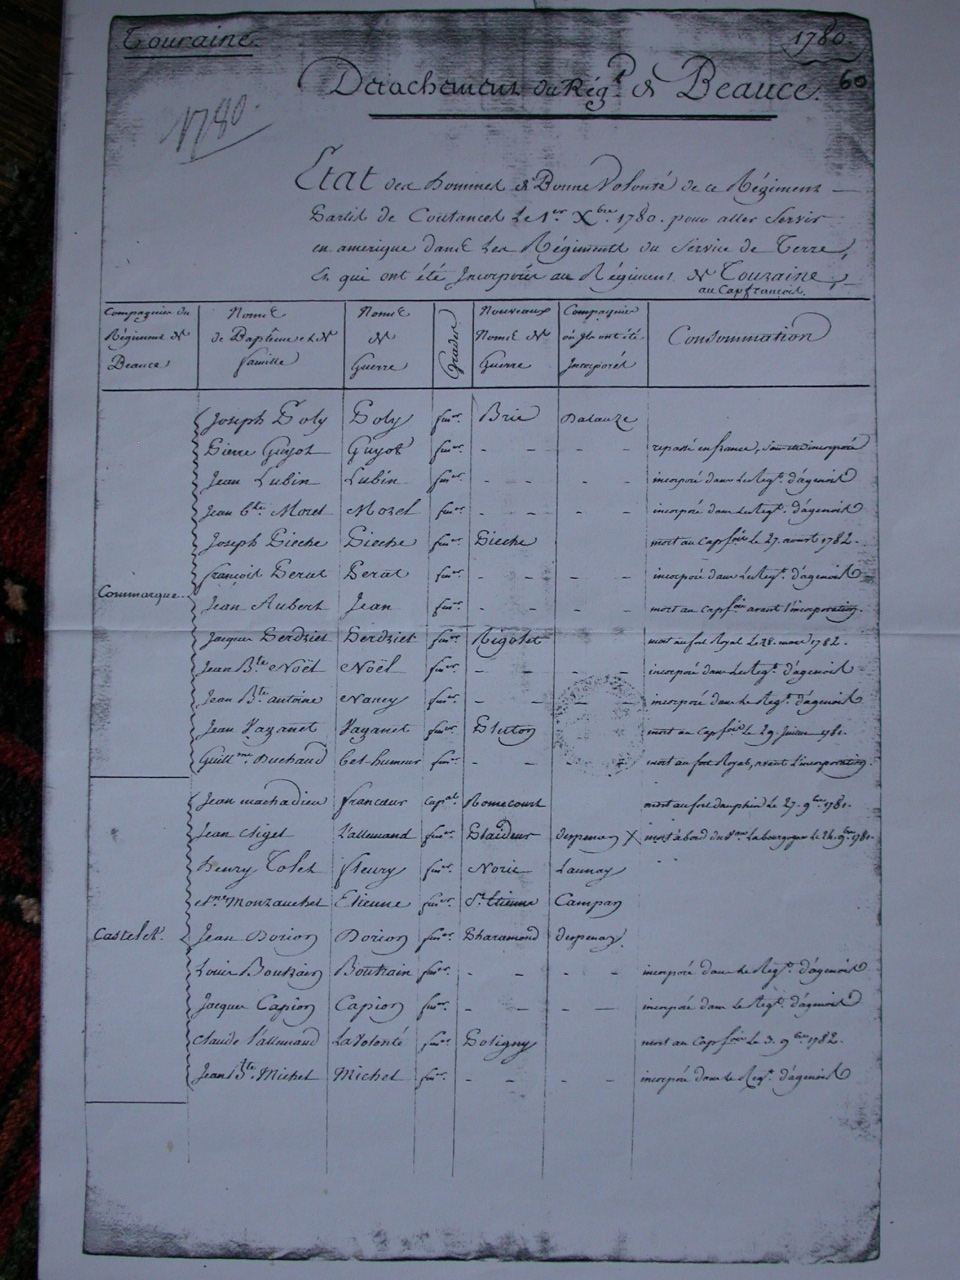 Touraine.
1780.
60
Detachement du Rég.t de Beauce.
1780.
Etat des hommes de Bonne Volonté de ce Régiment
Partis de Coutances Le 1.er Xbre 1780. pour aller Servir
en amerique dans Les Régiments du Service de Terre,
Et qui ont été Incorporés au Régiment de Touraine,
au Cap francois.
Compagnies du Régiment de Beauce
Noms de Baptême et de famille
Noms de Guerre
Grades
Nouveaux Noms de Guerre
Compagnies où Ils ont été Incorporés
Consommation
Commarque
Joseph Poly Poly fuer. Brie Dalauze
Pierre Guyot Guyot fuer. - - - - repassé en france, sans être incorporé
Jean Lubin Lubin fuer. - - - - incorporé dans Le Regt. d'agenois
Jean Bte. Morel Morel fuer. - - - - incorporé dans Le Regt. d'agenois
Joseph Pieche Pieche fuer. Pieche mort au Cap fois Le 27. aoust 1782.
françois Perat Perat fuer. - - - - incorporé dans Le Regt. d'agenois
Jean Aubert Jean fuer. - - - - mort au Cap fois avant l'incorporation.
Jacques fuer. Rigolet mort au fort Royal Le 28. mars 1782.
Jean Bte. Noël Noël fuer. - - - - incorporé dans Le Regt. d'agenois
Jean Bte. antoine Nancy fuer. - - - - incorporé dans Le Regt. d'agenois
Jean Vazanet Vazanet fuer. mort au Cap fois Le 29. 1781.
Guillme. Duchaud bel-humeur fuer. - - - - mort au fort Royal, avant L'incorporation.
Castelet.
Jean machadieu francœur Capal. Romecourt mort au fort dauphin Le 27. 9bre 1781.
Jean L'allemand fuer. Plaideur despenan X mort à bord du Vau. La bourgogne Le 24. 9bre 1781.
henry Tolet fleury fuer. Noris Launay
Etne. Monzauchet Etienne fuer. St. Etienne Campan
Jean Dorion Dorion fuer. Pharamond despenan.
Louis Boutrain Boutrain fuer. - - - - incorporé dans Le Regt. d'agenois
Jacques Capion Capion fuer. - - - - incorporé dans Le Regt. d'agenois
Claude l'allemand La Volonté fuer. Poligny mort au Cap fois Le 3. 9bre 1782.
Jean Bte. Michel Michel fuer. - - - - incorporé dans Le Regt. d'agenois